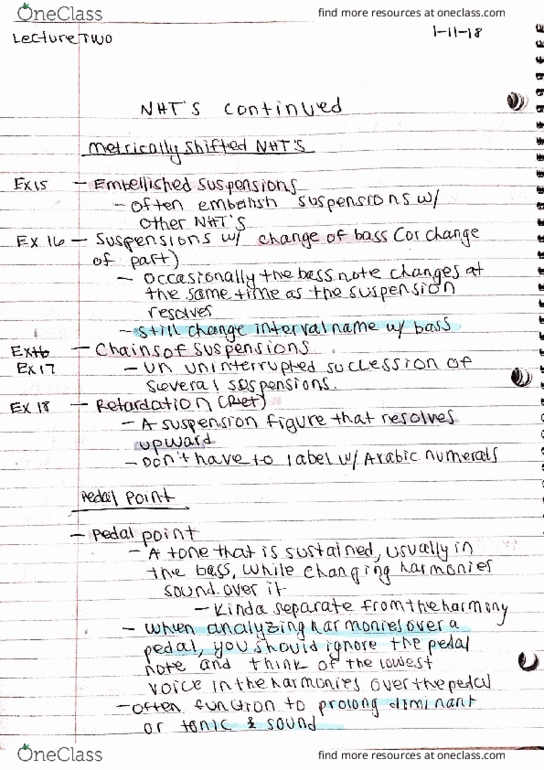 OneClass
find more resources at oneclass.com
Lecture Two
1-11-18
NHT'S continued
Metrically Shifted NHT'S
Ex15 - Embellished suspensions
- often embellish suspensions w/
other NHT'S
Ex 16 - Suspensions w/ change of bass (or change
of part)
- occasionally the bass note changes at
the same time as the suspension
resolves
- still change interval name w/ bass
Ex16 - Chains of suspensions
Ex17 - un uninterrupted succession of
several suspensions.
Ex 18 - Retardation (Ret)
- A suspension figure that resolves
upward
- Don't have to label w/ Arabic numerals
Pedal Point
- Pedal point
- A tone that is sustained, usually in
the bass, while changing harmonies
sound over it
- Kinda separate from the harmony
- when analyzing harmonies over a
pedal, you should ignore the pedal
note and think of the lowest
voice in the harmonies over the pedal
- often function to prolong dominant
or tonic & sound
OneClass
find more resources at oneclass.com